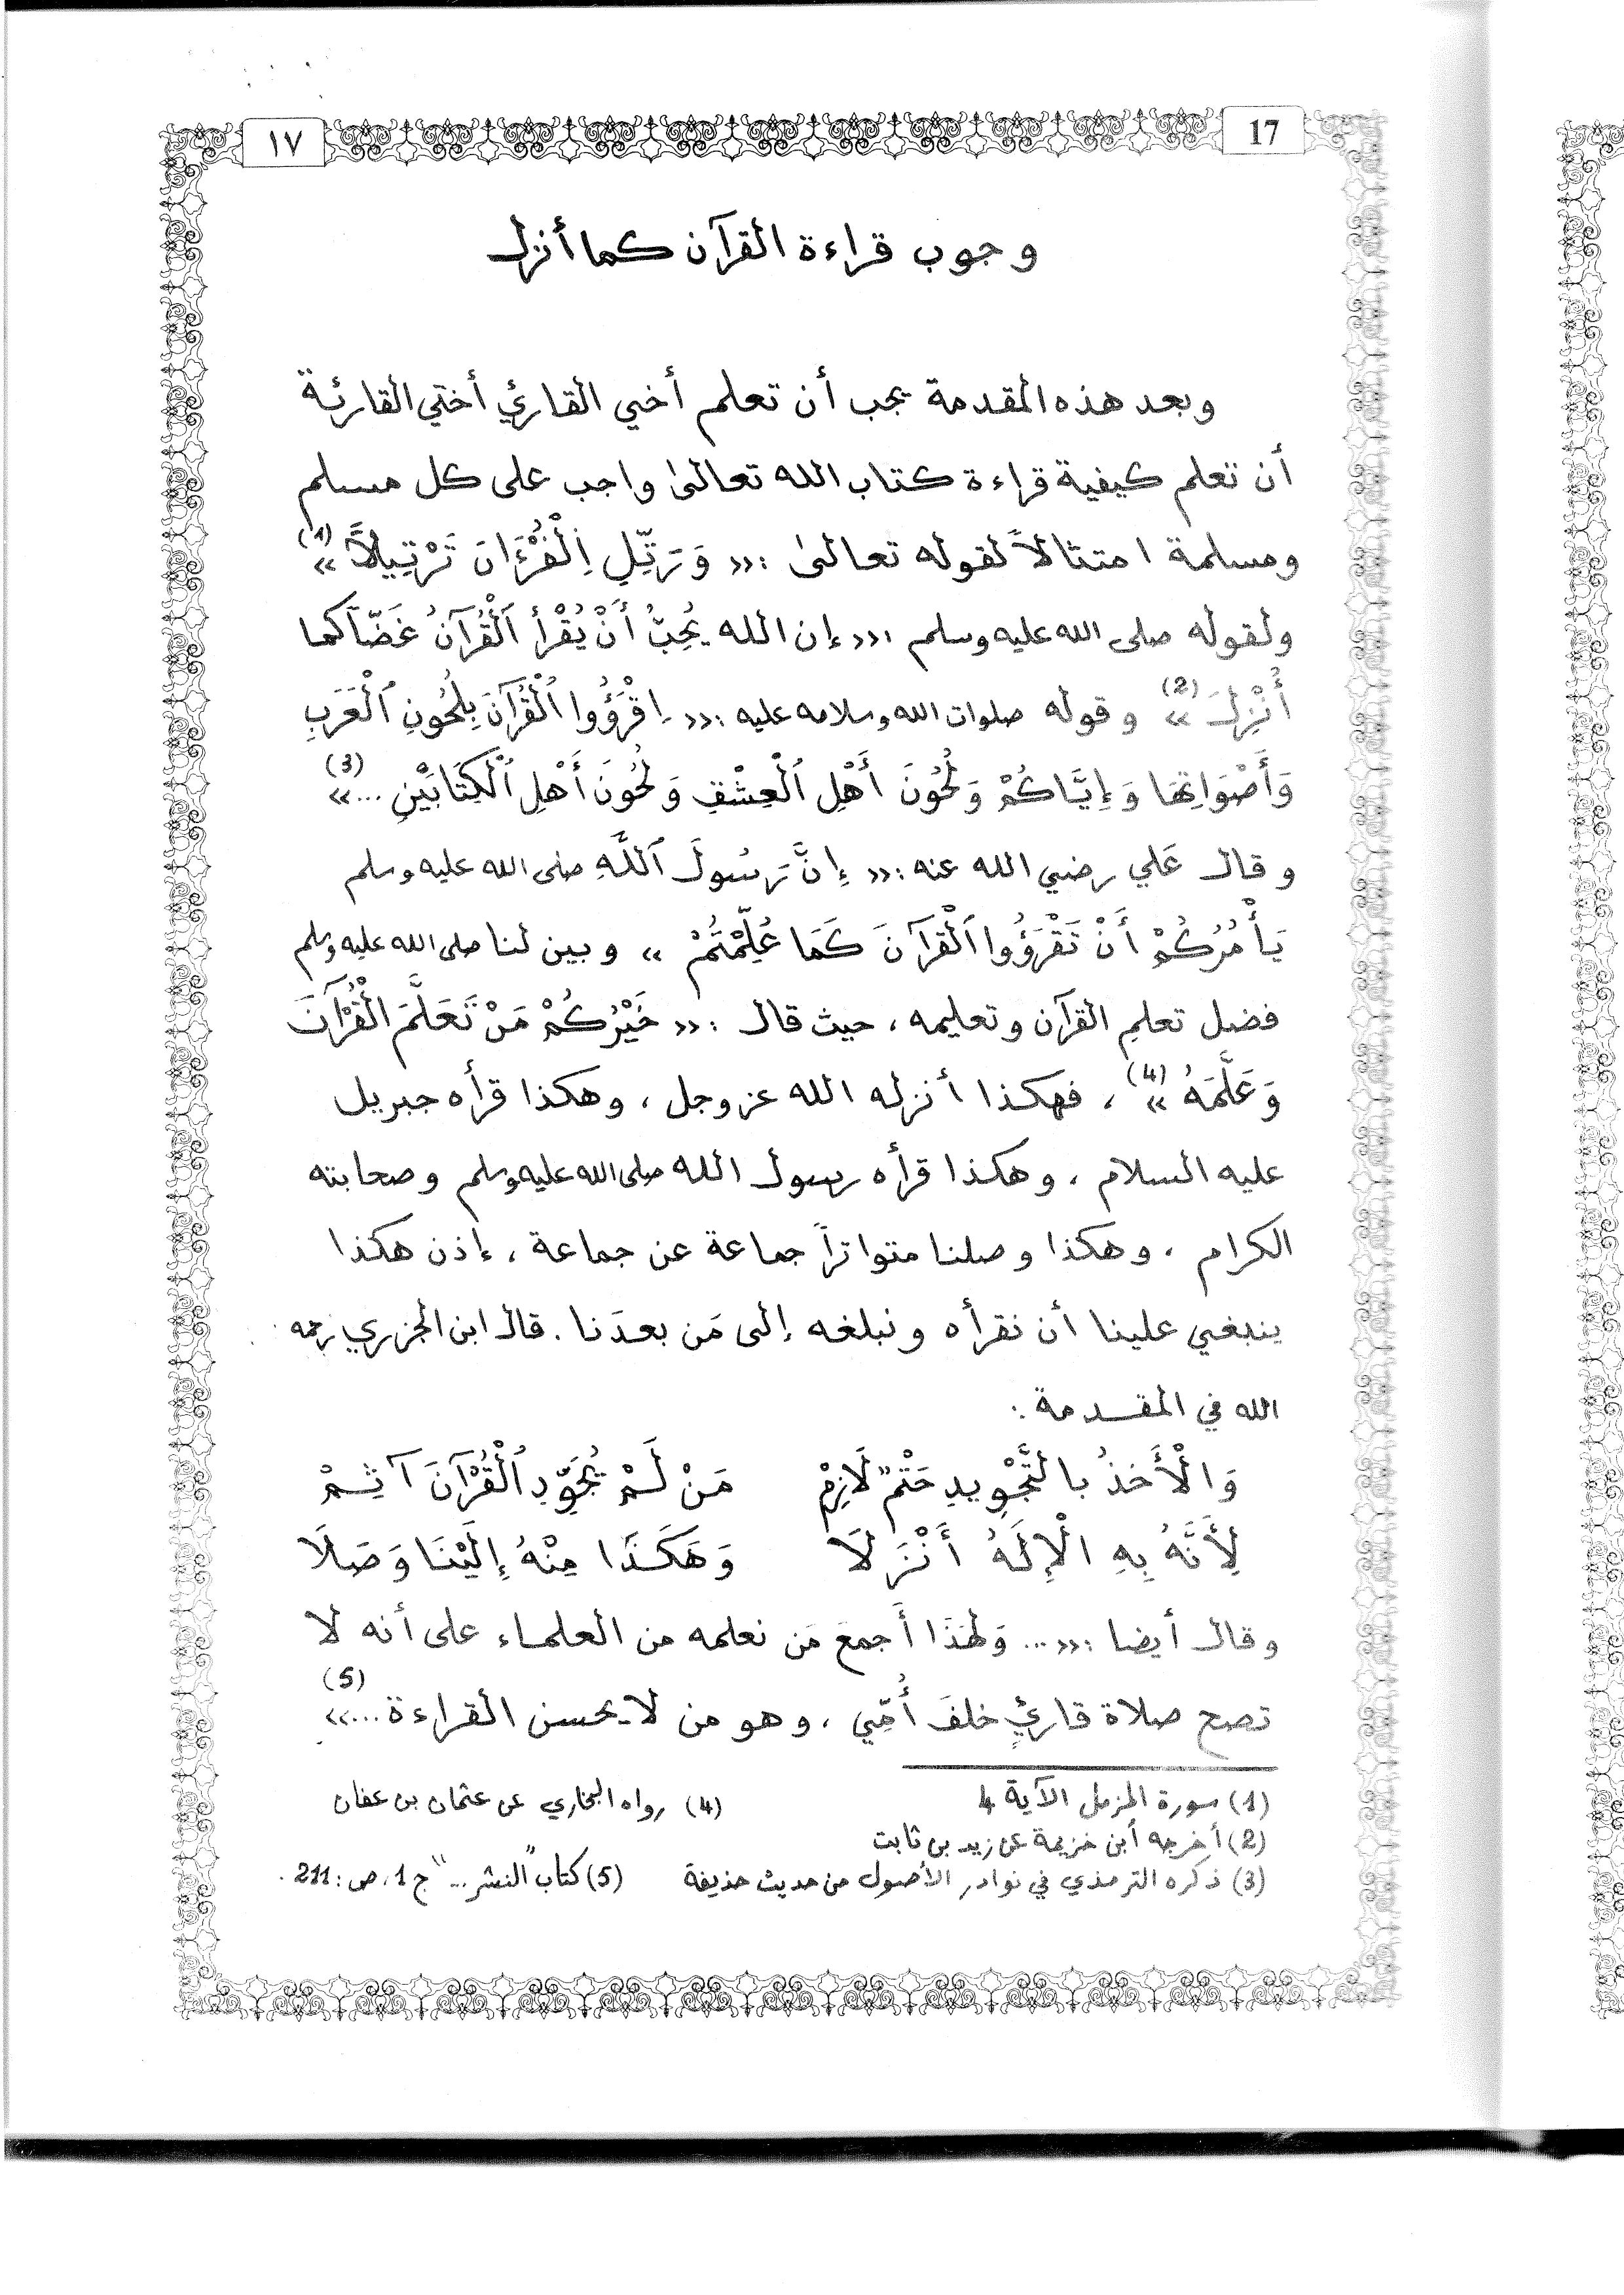 ١٧
17
وجوب قراءة القرآن كما أنزل
وبعد هذه المقدمة يجب أن تعلم أخي القارئ أختي القارئة
أن تعلم كيفية قراءة كتاب الله تعالى واجب على كل مسلم
ومسلمة امتثالاً لقوله تعالى :«وَرَتِّلِ اِلْقُرْءَانَ تَرْتِيلاً» (1)
ولقوله صلى الله عليه وسلم :«إن الله يُحِبُّ أَنْ يُقْرأَ ٱلْقُرآنُ غَضّاً كما
أُنْزِلَ» (2) وقوله صلوات الله وسلامه عليه :«اِقْرَؤُوا ٱلْقُرآنَ بِلُحُونِ ٱلْعَرَبِ
وَأَصْوَاتِهَا وَإِيَّاكُمْ وَلُحُونَ أَهْلِ ٱلْعِشْقِ وَلُحُونَ أَهْلِ ٱلْكِتَابَيْنِ ...» (3)
وقال عَلي رضي الله عنه :«إِنَّ رَسُولَ ٱللَّهِ صلى الله عليه وسلم
يَأْمُرُكُمْ أَنْ تَقْرَؤُوا ٱلْقرآنَ كَمَا عُلِّمْتُمْ» وبين لنا صلى الله عليه وسلم
فضل تعلمِ القرآن وتعليمه ، حيث قال :«خَيْرُكُمْ مَنْ تَعَلَّمَ الْقُرْآنَ
وَعَلَّمَهُ» (4) ، فهكذا أنزله الله عز وجل ، وهكذا قرأه جبريل
عليه السلام ، وهكذا قرأه رسول الله صلى الله عليه وسلم وصحابته
الكرام ، وهكذا وصلنا متواتراً جماعة عن جماعة ، إذن هكذا
ينبغي علينا أن نقرأه ونبلغه إلى مَن بعدَنا . قال ابن الجزري رحمه
الله في المقدمة :
وَالْأَخذُ بالتَّجْوِيدِ حَتْمٌ لَازِمْ مَنْ لَمْ يُجَوِّدِ ٱلْقُرْآنَ آثِمْ
لِأَنَّهُ بِهِ الْإِلَهُ أَنْزَلَا وَهَكَذَا مِنْهُ إِلَيْنَا وَصَلَا
وقال أيضا :«... وَلهَذَا أَجمعَ مَن نعلمه من العلماء على أنه لا
تصح صلاة قارئٍ خلفَ أُمِّي ، وهو من لا يحسن القراءة ...» (5)
(1) سورة المزمل الآية 4
(4) رواه البخاري عن عثمان بن عفان
(2) أخرجه أبن خزيمة عن زيد بن ثابت
(3) ذكره الترمذي في نوادر الأصول من حديث حذيفة
(5) كتاب "النشر ..." ج 1. ص : 211 .